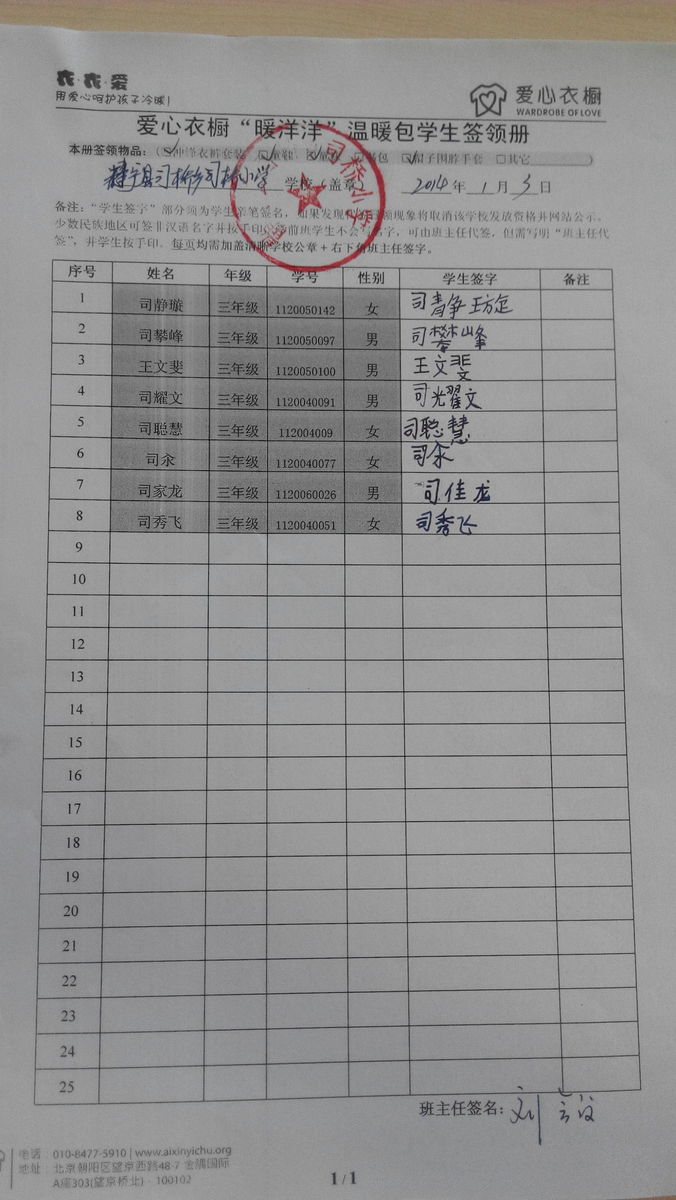 衣·衣·爱
用爱心呵护孩子冷暖!
爱心衣橱
WARDROBE OF LOVE
爱心衣橱“暖洋洋”温暖包学生签领册
本册签领物品:(☑冲锋衣裤套装 ☑童鞋 ☑ ☑书包 ☑帽子围脖手套 ☐其它 )
静宁县司桥乡司桥小学 学校(盖章) 2014年 1月 3日
司桥小学
备注:“学生签字”部分须为学生亲笔签名,如果发现 现象将取消该学校发放资格并网站公示。
少数民族地区可签非汉语名字并按手印 学前班学生不会写名字,可由班主任代签,但需写明“班主任代
签”,并学生按手印。每页均需加盖清晰学校公章+右下角班主任签字。
序号 姓名 年级 学号 性别 学生签字 备注
1 司静璇 三年级 1120050142 女 司静璇
2 司攀峰 三年级 1120050097 男 司攀峰
3 王文斐 三年级 1120050100 男 王文斐
4 司耀文 三年级 1120040091 男 司耀文
5 司聪慧 三年级 112004009 女 司聪慧
6 司余 三年级 1120040077 女 司余
7 司家龙 三年级 1120060026 男 司佳龙
8 司秀飞 三年级 1120040051 女 司秀飞
9
10
11
12
13
14
15
16
17
18
19
20
21
22
23
24
25
班主任签名:刘
电话:010-8477-5910 | www.aixinyichu.org
地址:北京朝阳区望京西路48-7 金隅国际
A座303(望京桥北)·100102
1 / 1